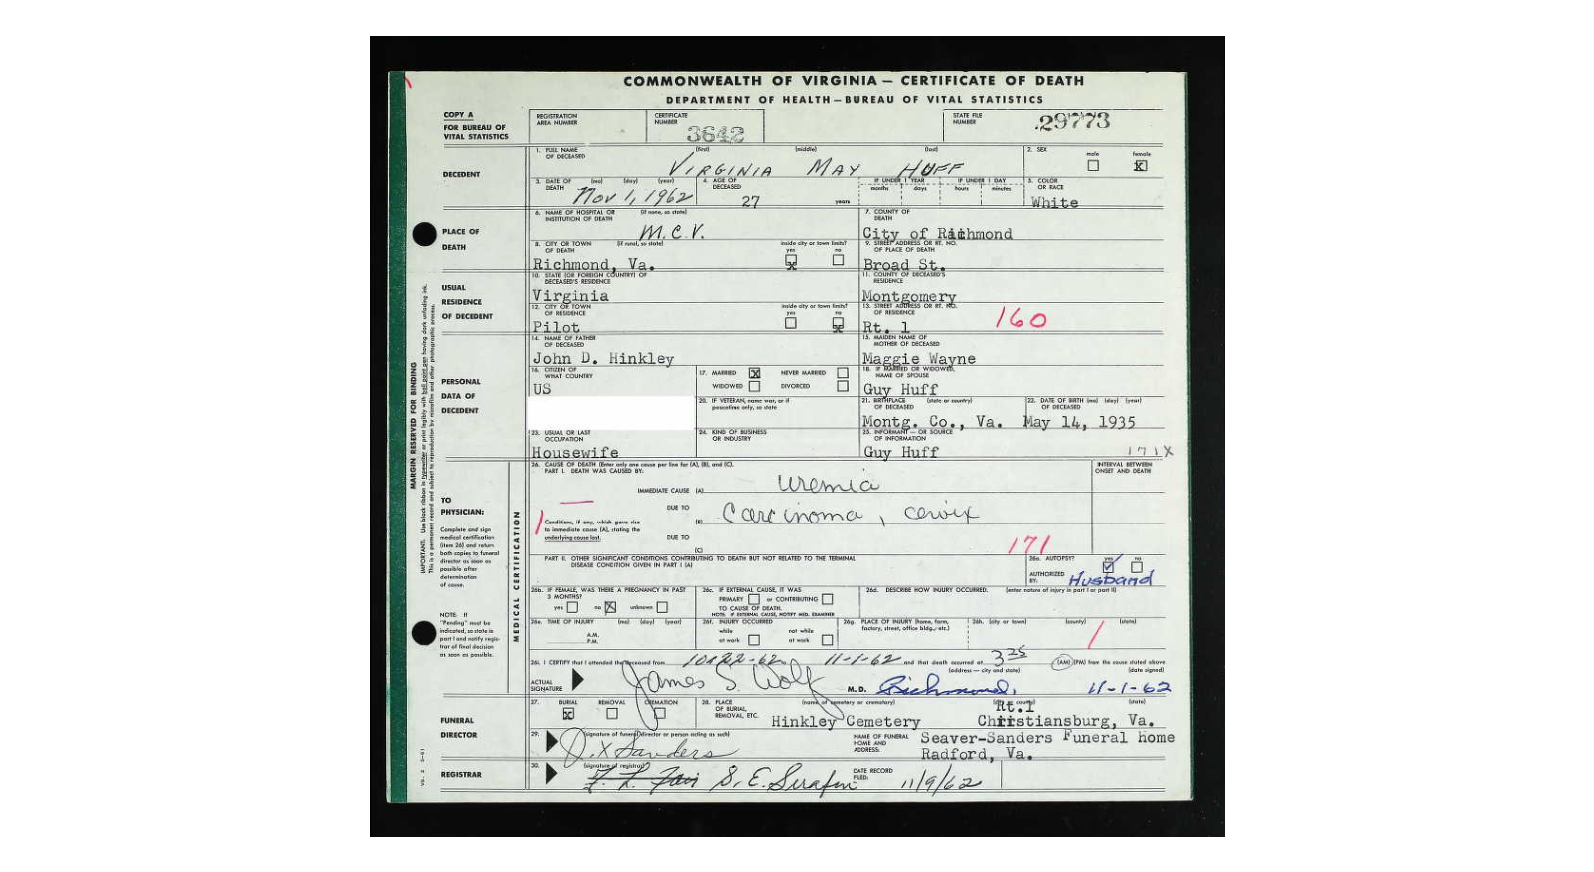 COMMONWEALTH OF VIRGINIA — CERTIFICATE OF DEATH
DEPARTMENT OF HEALTH—BUREAU OF VITAL STATISTICS
COPY A
FOR BUREAU OF
VITAL STATISTICS
REGISTRATION
AREA NUMBER
CERTIFICATE
NUMBER
3642
STATE FILE
NUMBER
29773
DECEDENT
1. FULL NAME
OF DECEASED
(first) (middle) (last)
VIRGINIA MAY HUFF
2. SEX
male female
X
3. DATE OF
DEATH
(mo) (day) (year)
Nov 1, 1962
4. AGE OF
DECEASED
27 years
IF UNDER 1 YEAR IF UNDER 1 DAY
months days hours minutes
5. COLOR
OR RACE
White
PLACE OF
DEATH
6. NAME OF HOSPITAL OR
INSTITUTION OF DEATH
(if none, so state)
M.C.V.
7. COUNTY OF
DEATH
City of Richmond
8. CITY OR TOWN
OF DEATH
(if rural, so state)
inside city or town limits?
yes no
X
Richmond, Va.
9. STREET ADDRESS OR RT. NO.
OF PLACE OF DEATH
Broad St.
USUAL
RESIDENCE
OF DECEDENT
10. STATE (OR FOREIGN COUNTRY) OF
DECEASED'S RESIDENCE
Virginia
11. COUNTY OF DECEASED'S
RESIDENCE
Montgomery
12. CITY OR TOWN
OF RESIDENCE
inside city or town limits?
yes no
X
Pilot
13. STREET ADDRESS OR RT. NO.
OF RESIDENCE
Rt. 1
160
PERSONAL
DATA OF
DECEDENT
14. NAME OF FATHER
OF DECEASED
John D. Hinkley
15. MAIDEN NAME OF
MOTHER OF DECEASED
Maggie Wayne
16. CITIZEN OF
WHAT COUNTRY
US
17. MARRIED X NEVER MARRIED
WIDOWED DIVORCED
18. IF MARRIED OR WIDOWED,
NAME OF SPOUSE
Guy Huff
20. IF VETERAN, name war, or if
peacetime only, so state
21. BIRTHPLACE (state or country)
OF DECEASED
Montg. Co., Va.
22. DATE OF BIRTH (mo) (day) (year)
OF DECEASED
May 14, 1935
23. USUAL OR LAST
OCCUPATION
Housewife
24. KIND OF BUSINESS
OR INDUSTRY
25. INFORMANT — OR SOURCE
OF INFORMATION
Guy Huff
171X
TO
PHYSICIAN:
Complete and sign
medical certification
(item 26) and return
both copies to funeral
director as soon as
possible after
determination
of cause.
NOTE: If
"Pending" must be
indicated, so state in
part I and notify regis-
trar of final decision
as soon as possible.
MEDICAL CERTIFICATION
26. CAUSE OF DEATH (Enter only one cause per line for (A), (B), and (C).
PART I. DEATH WAS CAUSED BY:
INTERVAL BETWEEN
ONSET AND DEATH
IMMEDIATE CAUSE (A) Uremia
DUE TO
(B) Carcinoma, cervix
Conditions, if any, which gave rise
to immediate cause (A), stating the
underlying cause last.
DUE TO
(C)
171
PART II. OTHER SIGNIFICANT CONDITIONS CONTRIBUTING TO DEATH BUT NOT RELATED TO THE TERMINAL
DISEASE CONDITION GIVEN IN PART I (A)
26a. AUTOPSY?
yes no
AUTHORIZED
BY: Husband
26b. IF FEMALE, WAS THERE A PREGNANCY IN PAST
3 MONTHS?
yes no X unknown
26c. IF EXTERNAL CAUSE, IT WAS
PRIMARY or CONTRIBUTING
TO CAUSE OF DEATH.
NOTE: IF EXTERNAL CAUSE, NOTIFY MED. EXAMINER
26d. DESCRIBE HOW INJURY OCCURRED. (enter nature of injury in part I or part II)
26e. TIME OF INJURY (mo) (day) (year)
A.M.
P.M.
26f. INJURY OCCURRED
while not while
at work at work
26g. PLACE OF INJURY (home, farm,
factory, street, office bldg., etc.)
26h. (city or town) (county) (state)
26i. I CERTIFY that I attended the deceased from 10-22-62 11-1-62 and that death occurred at 3 25 (AM) (PM) from the cause stated above
(address — city and state) (date signed)
ACTUAL
SIGNATURE
James S. Wolf M.D. Richmond, 11-1-62
FUNERAL
DIRECTOR
27. BURIAL REMOVAL CREMATION
X
28. PLACE
OF BURIAL,
REMOVAL, ETC.
(name of cemetery or crematory) (county) (state)
Hinkley Cemetery
Rt.1
Christiansburg, Va.
29. (signature of funeral director or person acting as such)
Sanders
NAME OF FUNERAL
HOME AND
ADDRESS:
Seaver-Sanders Funeral Home
Radford, Va.
REGISTRAR
30. (signature of registrar)
S. E. Serafin
DATE RECORD
FILED:
11/9/62
MARGIN RESERVED FOR BINDING
IMPORTANT: Use black ribbon in typewriter or print legibly with ball point pen having dark unfading ink.
This is a permanent record and subject to reproduction by microfilm and other photographic process.